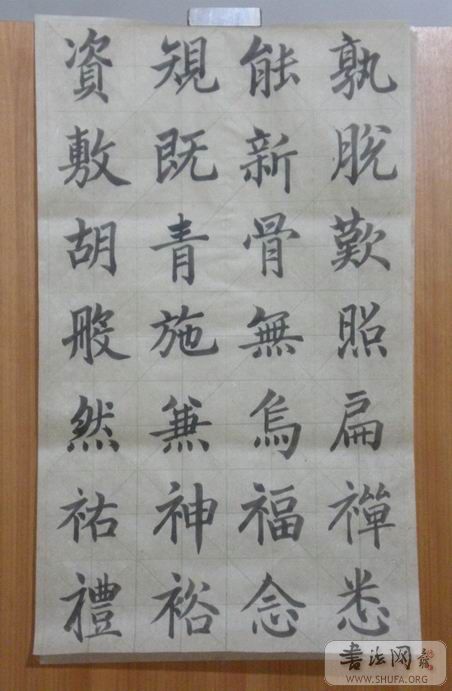 孰脫歎照扁禪悉
能新骨無烏福念
規既青施兼神裕
資敷胡般然祐禮
书法网
WWW.SHUFA.ORG